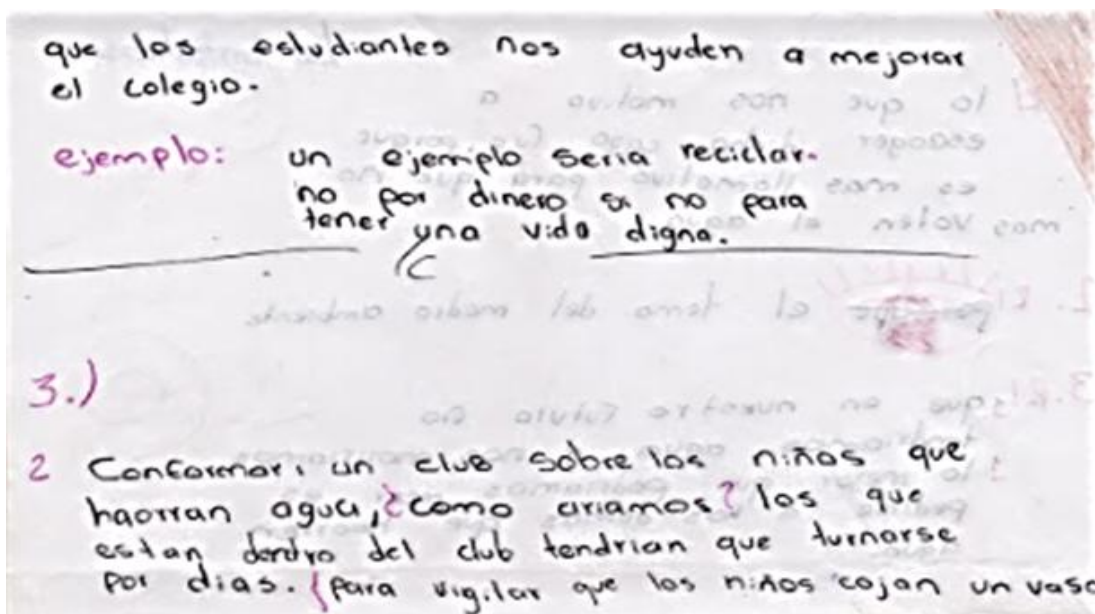 que los estudiantes nos ayuden a mejorar
el colegio.
ejemplo: un ejemplo seria reciclar.
no por dinero si no para
tener una vida digna.
3.)
2 Conformar un club sobre los niños que
haorran agua, ¿como ariamos? los que
estan dentro del club tendrian que turnarse
por dias. (para vigilar que los niños cojan un vaso